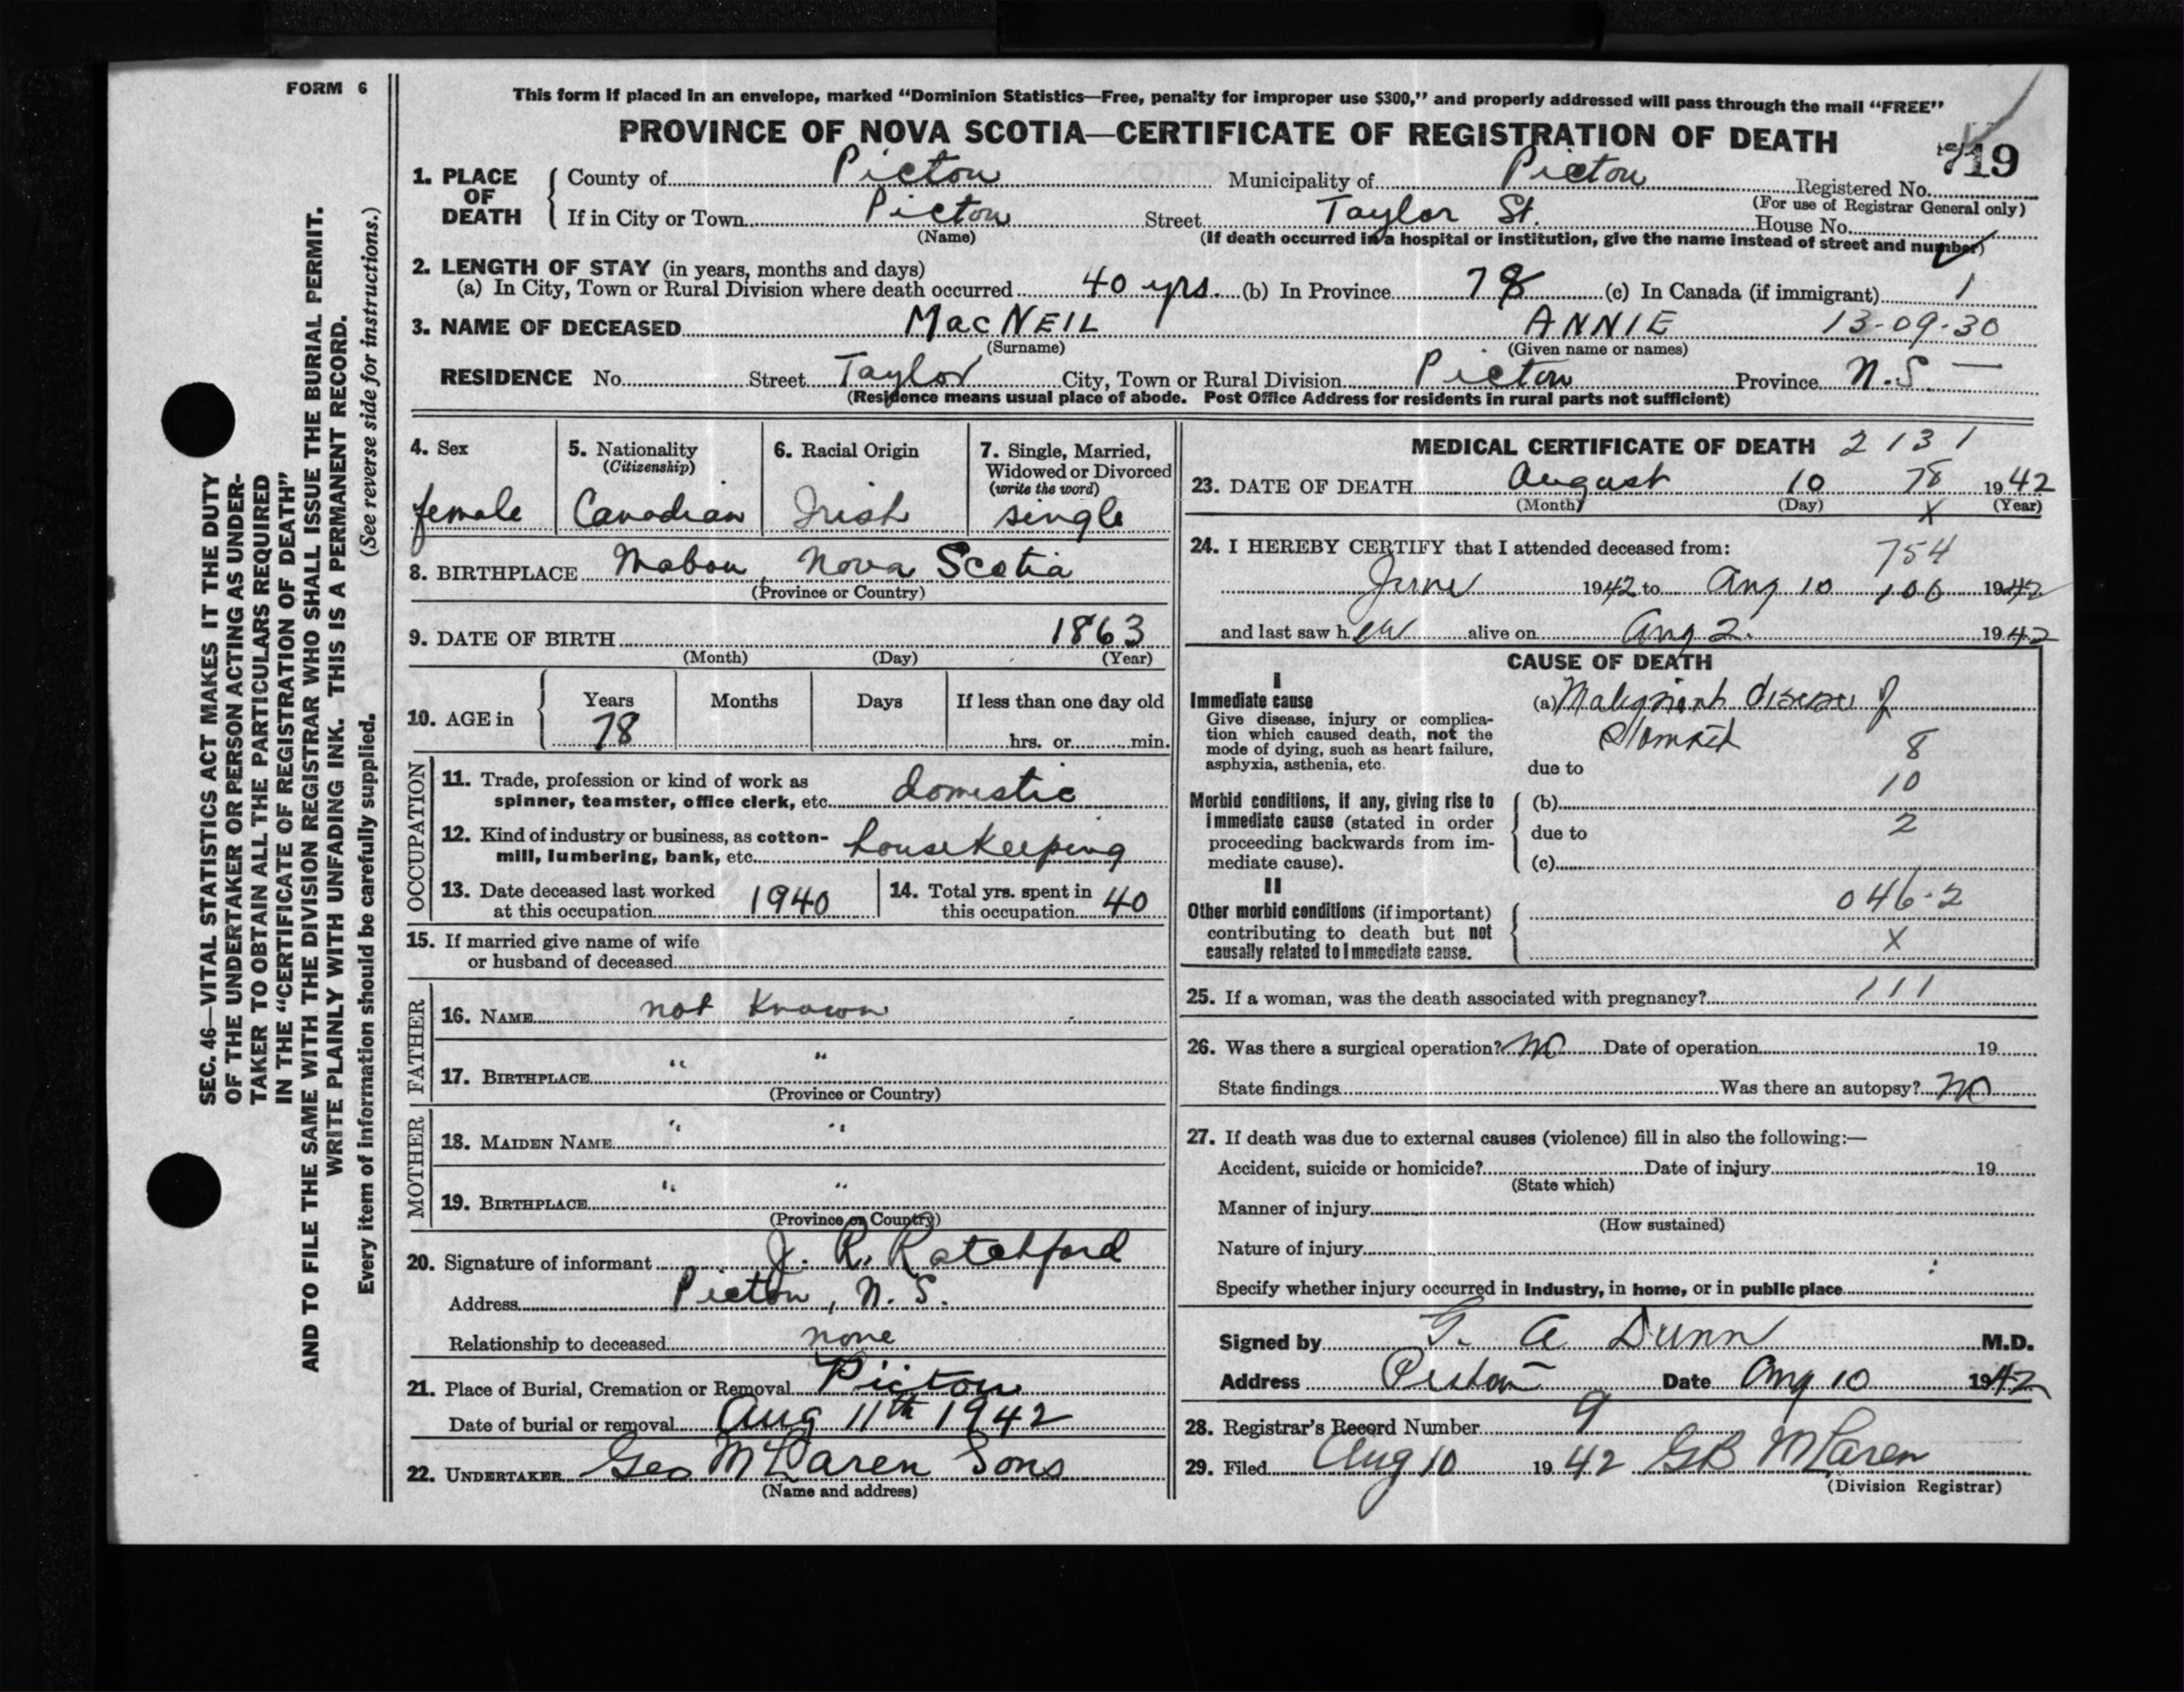 FORM 6
This form if placed in an envelope, marked “Dominion Statistics—Free, penalty for improper use $300,” and properly addressed will pass through the mail “FREE”
PROVINCE OF NOVA SCOTIA—CERTIFICATE OF REGISTRATION OF DEATH
719
1. PLACE OF DEATH
County of Pictou Municipality of Pictou Registered No.
(For use of Registrar General only)
If in City or Town Pictou Street Taylor St. House No.
(Name) (If death occurred in a hospital or institution, give the name instead of street and number)
2. LENGTH OF STAY (in years, months and days)
(a) In City, Town or Rural Division where death occurred 40 yrs. (b) In Province 78 (c) In Canada (if immigrant) 1
3. NAME OF DECEASED MacNEIL ANNIE 13-09-30
(Surname) (Given name or names)
RESIDENCE No. Street Taylor City, Town or Rural Division Pictou Province N.S. —
(Residence means usual place of abode. Post Office Address for residents in rural parts not sufficient)
4. Sex
female
5. Nationality
(Citizenship)
Canadian
6. Racial Origin
Irish
7. Single, Married,
Widowed or Divorced
(write the word)
single
8. BIRTHPLACE Mabou, Nova Scotia
(Province or Country)
9. DATE OF BIRTH 1863
(Month) (Day) (Year)
10. AGE in
Years Months Days If less than one day old
78 hrs. or min.
OCCUPATION
11. Trade, profession or kind of work as
spinner, teamster, office clerk, etc. domestic
12. Kind of industry or business, as cotton-
mill, lumbering, bank, etc. housekeeping
13. Date deceased last worked
at this occupation 1940
14. Total yrs. spent in
this occupation 40
15. If married give name of wife
or husband of deceased
FATHER
16. NAME not known
17. BIRTHPLACE " "
(Province or Country)
MOTHER
18. MAIDEN NAME " "
19. BIRTHPLACE " "
(Province or Country)
20. Signature of informant J. R. Ratchford
Address Pictou, N. S.
Relationship to deceased none
21. Place of Burial, Cremation or Removal Pictou
Date of burial or removal Aug 11th 1942
22. UNDERTAKER Geo McLaren Sons
(Name and address)
MEDICAL CERTIFICATE OF DEATH 2131
23. DATE OF DEATH August 10 78 1942
(Month) (Day) X (Year)
24. I HEREBY CERTIFY that I attended deceased from:
754
June 1942 to Aug 10 106 1942
and last saw her alive on Aug 2. 1942
CAUSE OF DEATH
I
Immediate cause
Give disease, injury or complica-
tion which caused death, not the
mode of dying, such as heart failure,
asphyxia, asthenia, etc.
(a) Malignant disease of
Stomach
8
due to
10
Morbid conditions, if any, giving rise to
immediate cause (stated in order
proceeding backwards from im-
mediate cause).
(b)
due to 2
(c)
II
Other morbid conditions (if important)
contributing to death but not
causally related to immediate cause.
046-2
X
25. If a woman, was the death associated with pregnancy? 111
26. Was there a surgical operation? No Date of operation 19
State findings Was there an autopsy? No
27. If death was due to external causes (violence) fill in also the following:—
Accident, suicide or homicide? Date of injury 19
(State which)
Manner of injury
(How sustained)
Nature of injury
Specify whether injury occurred in industry, in home, or in public place
Signed by G. A Dunn M.D.
Address Pictou Date Aug 10 1942
28. Registrar's Record Number 9
29. Filed Aug 10 1942 GB McLaren
(Division Registrar)
SEC. 46—VITAL STATISTICS ACT MAKES IT THE DUTY
OF THE UNDERTAKER OR PERSON ACTING AS UNDER-
TAKER TO OBTAIN ALL THE PARTICULARS REQUIRED
IN THE “CERTIFICATE OF REGISTRATION OF DEATH”
AND TO FILE THE SAME WITH THE DIVISION REGISTRAR WHO SHALL ISSUE THE BURIAL PERMIT.
WRITE PLAINLY WITH UNFADING INK. THIS IS A PERMANENT RECORD.
Every item of information should be carefully supplied. (See reverse side for instructions.)